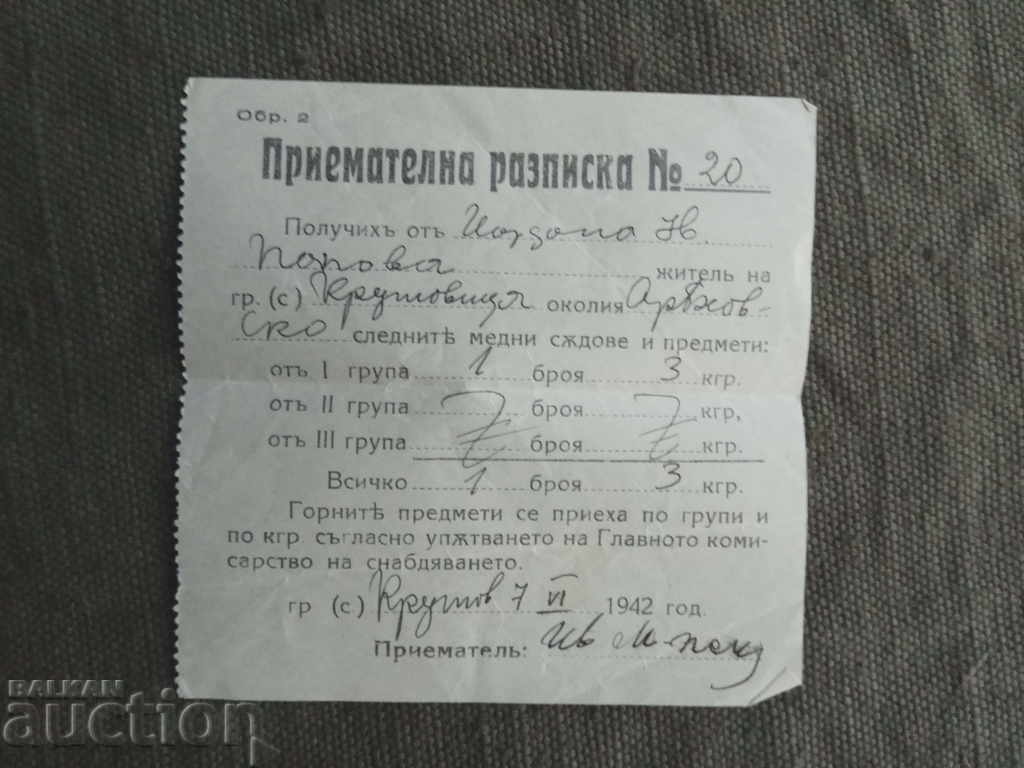 Обр. 2
Приемателна разписка № 20
Получихъ отъ Иордана Ив.
Попова житель на
гр. (с) Крушовица околия Орѣхов-
ско следнитѣ медни сѫдове и предмети:
отъ I група 1 броя 3 кгр.
отъ II група броя кгр,
отъ III група броя кгр.
Всичко 1 броя 3 кгр.
Горнитѣ предмети се приеха по групи и
по кгр. съгласно упѫтването на Главното коми-
сарство на снабдяването.
гр (с.) Крушов 7 VI 1942 год.
Приематель: Ив
BALKAN
auction